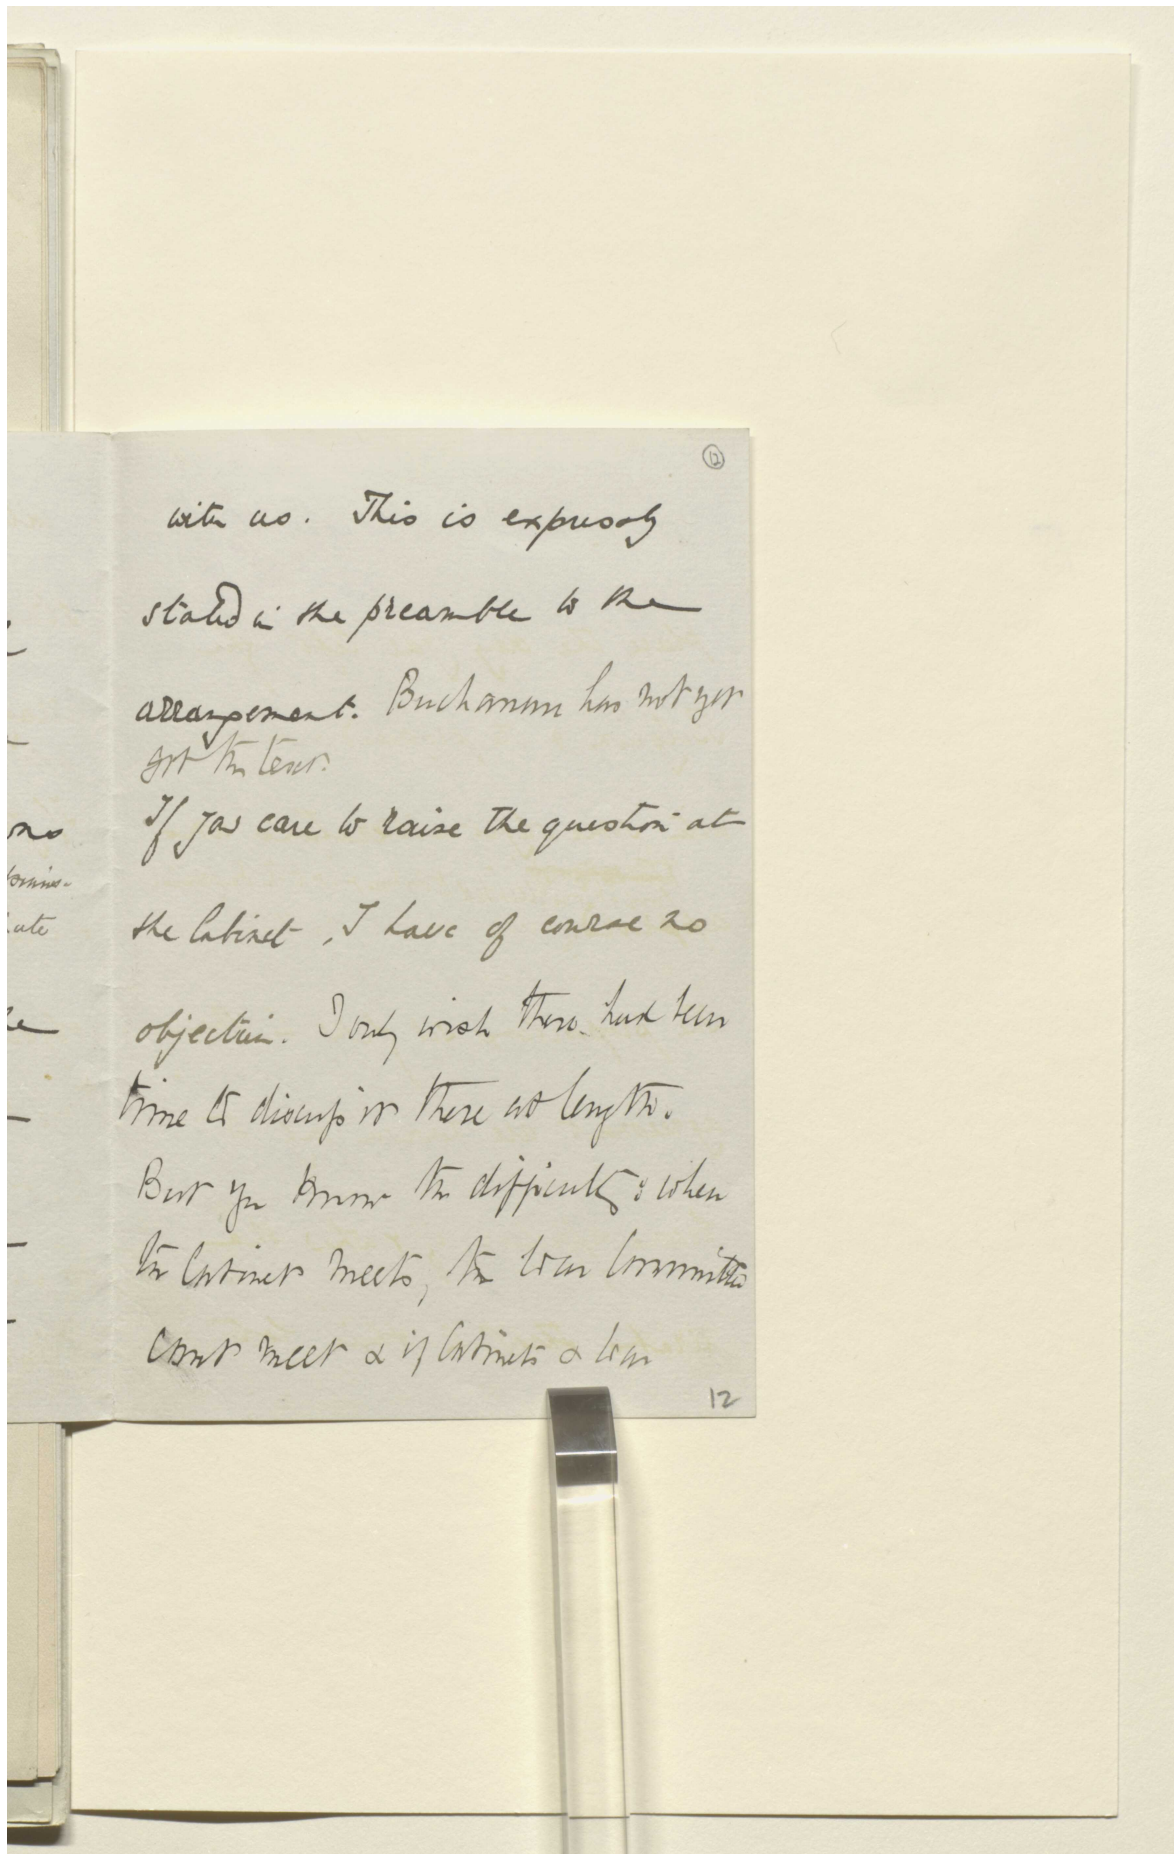 12
with us. This is expressly
stated in the preamble to the
arrangement. Buchanan has not yet
got the text.
If you care to raise the question at
the Cabinet, I have of course no
objection. I only wish there had been
time to discuss it there at length.
But you know the difficulty: when
the Cabinet meets, the War Committee
can't meet & if Cabinets & War
12
no
ate